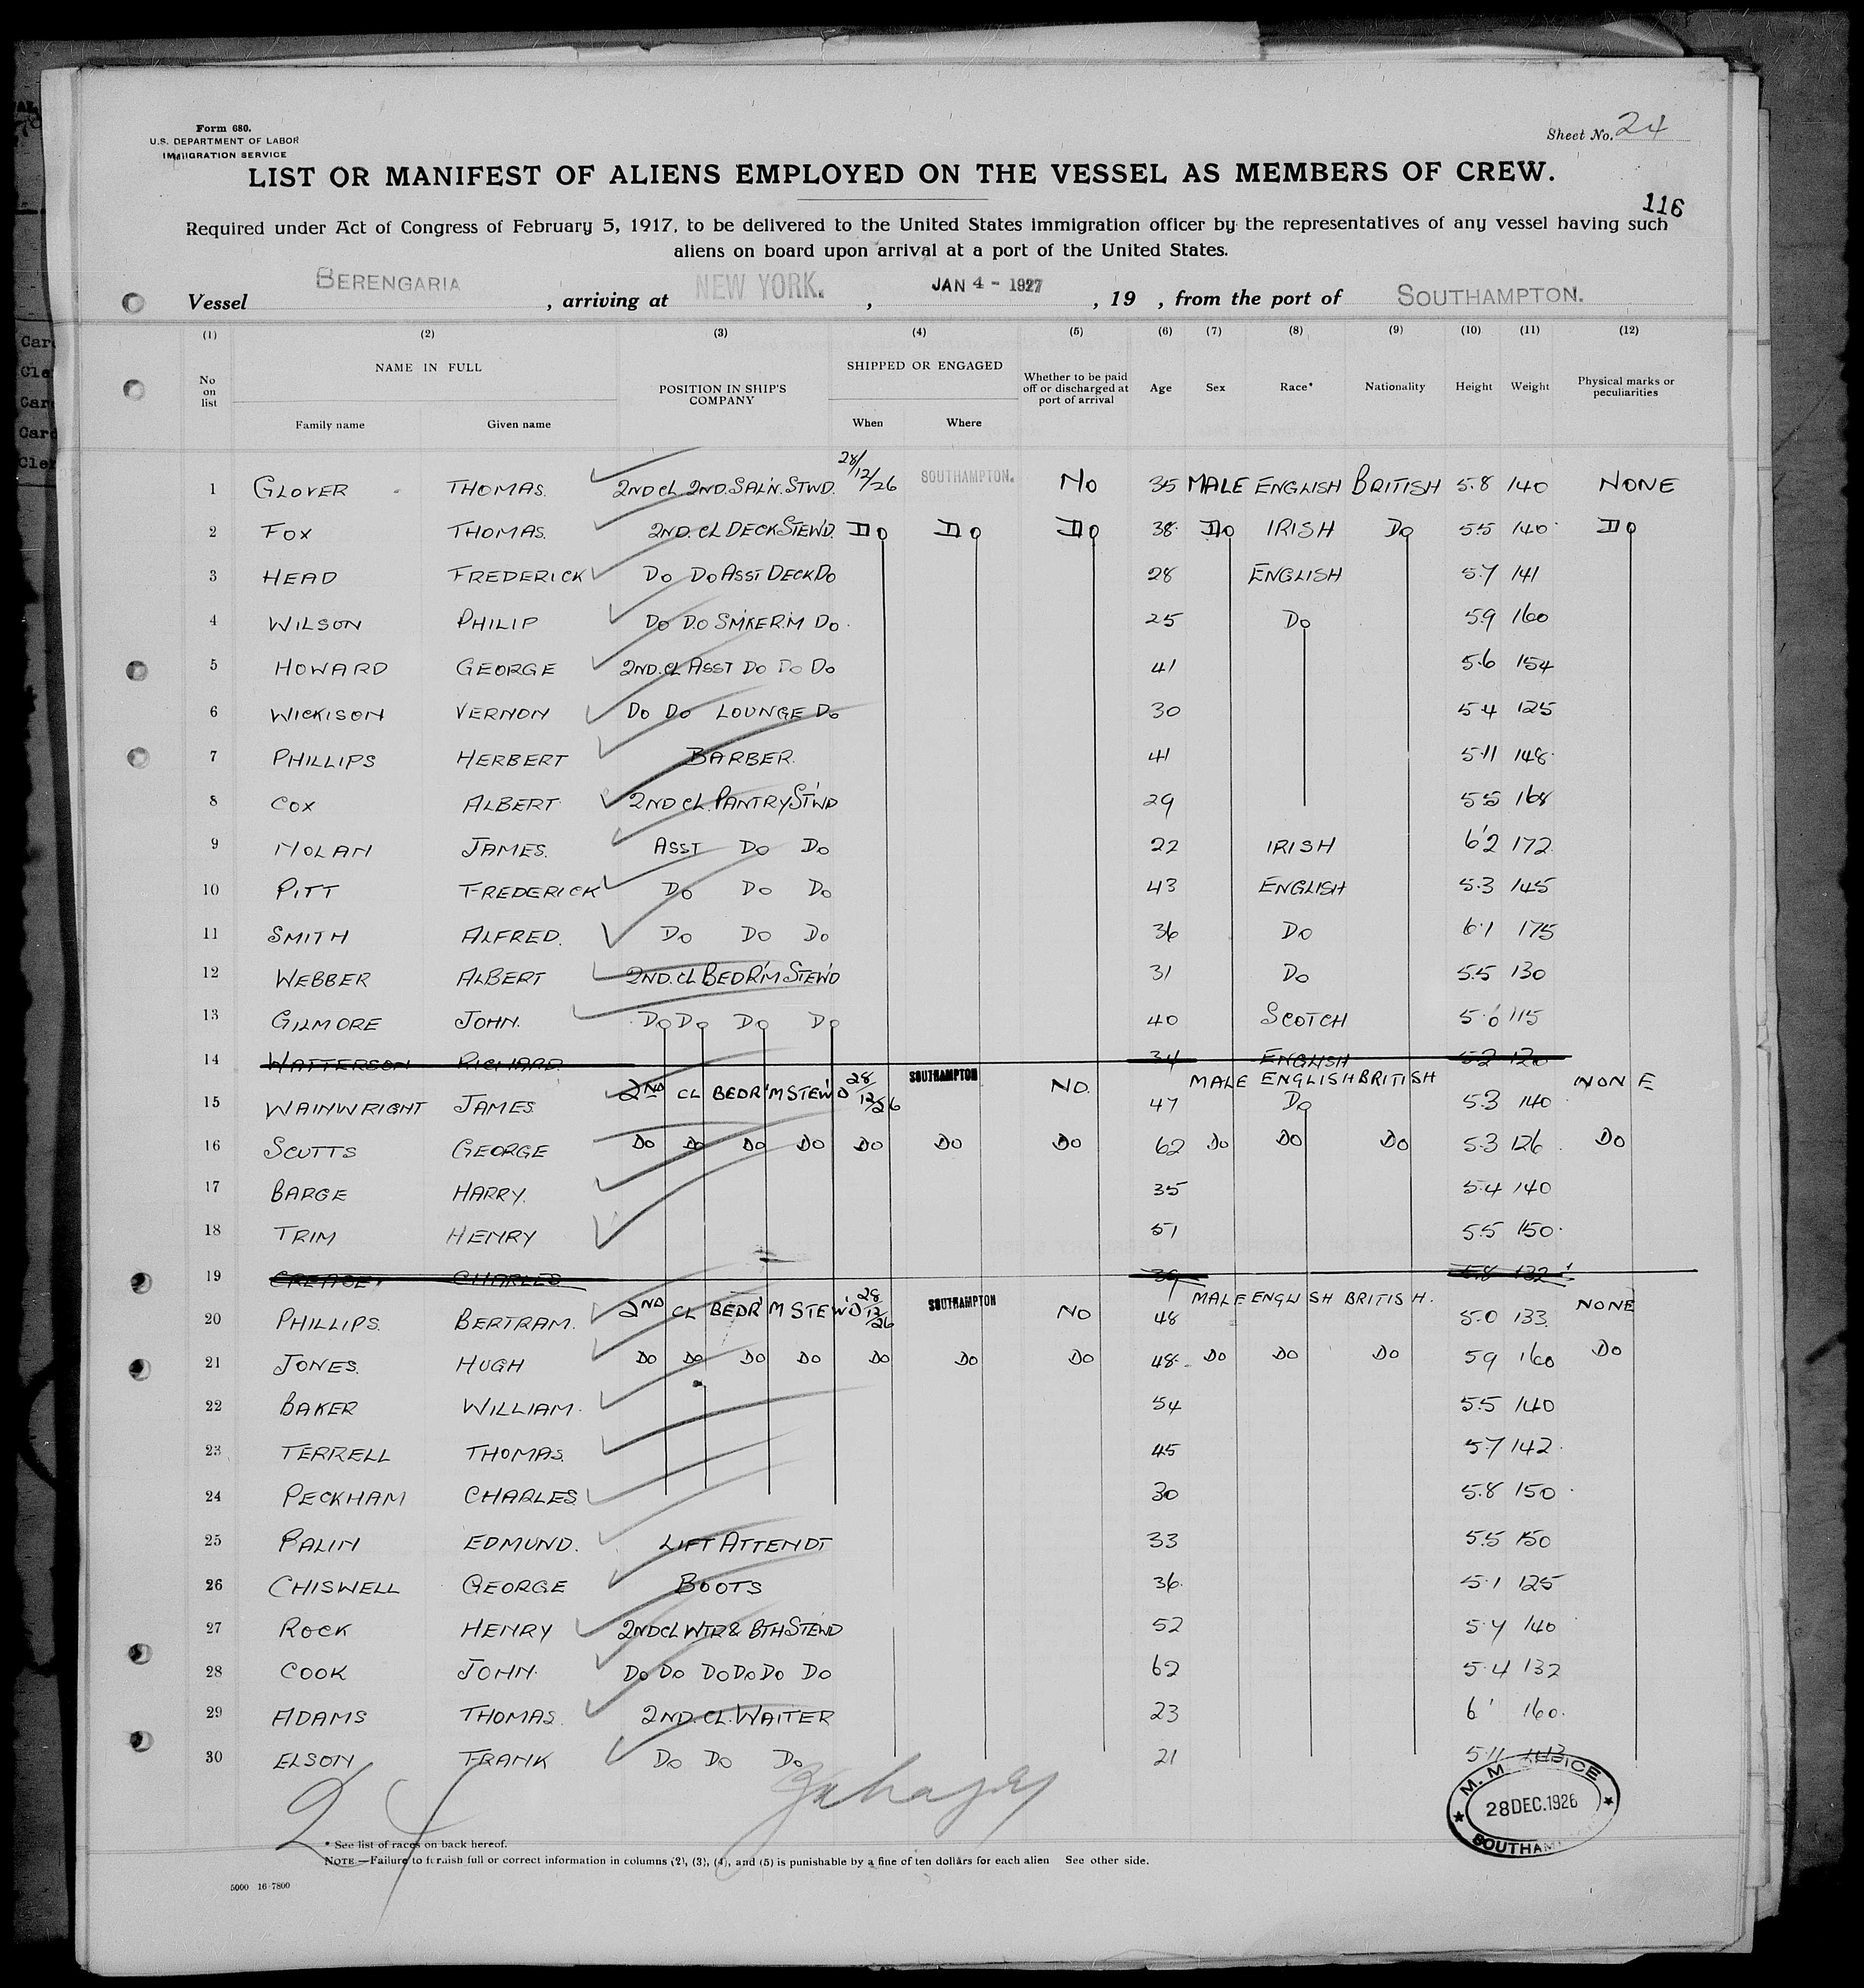 Form 680.
U.S. DEPARTMENT OF LABOR
IMMIGRATION SERVICE
Sheet No. 24
LIST OR MANIFEST OF ALIENS EMPLOYED ON THE VESSEL AS MEMBERS OF CREW.
116
Required under Act of Congress of February 5, 1917, to be delivered to the United States immigration officer by the representatives of any vessel having such
aliens on board upon arrival at a port of the United States.
Vessel BERENGARIA, arriving at NEW YORK., JAN 4 - 1927, 19 , from the port of SOUTHAMPTON.
(1) (2) (3) (4) (5) (6) (7) (8) (9) (10) (11) (12)
No on list NAME IN FULL Family name Given name POSITION IN SHIP'S COMPANY SHIPPED OR ENGAGED When Where Whether to be paid off or discharged at port of arrival Age Sex Race* Nationality Height Weight Physical marks or peculiarities
1 GLOVER THOMAS. 2ND CL 2ND. SAL'N. STWD. 28/12/26 SOUTHAMPTON. No 35 MALE ENGLISH BRITISH 5.8 140 NONE
2 FOX THOMAS. 2ND. CL DECK STEW'D. Do Do Do 38. Do IRISH Do 5.5 140 Do
3 HEAD FREDERICK Do Do ASST DECK Do 28 ENGLISH 5.7 141
4 WILSON PHILIP Do Do SM'KE R'M Do. 25 Do 5.9 160
5 HOWARD GEORGE 2ND. CL ASST Do Do Do 41 5.6 154
6 WICKISON VERNON Do Do LOUNGE Do 30 5.4 125
7 PHILLIPS HERBERT BARBER. 41 5.11 148.
8 COX ALBERT 2ND CL. PANTRY ST'WD 29 5.5 168
9 NOLAN JAMES. ASST Do Do 22 IRISH 6'2 172
10 PITT FREDERICK Do Do Do 43 ENGLISH 5.3 145
11 SMITH ALFRED. Do Do Do 36 Do 6.1 175
12 WEBBER ALBERT 2ND. CL BEDR'M STEW'D 31 Do 5.5 130
13 GILMORE JOHN. Do Do Do Do 40 SCOTCH 5.6 115
14 WATTERSON RICHARD 34 ENGLISH 5.2 120
15 WAINWRIGHT JAMES 2ND CL BEDR'M STEW'D 28/12/26 SOUTHAMPTON NO. 47 MALE ENGLISH BRITISH Do 5.3 140 NONE
16 SCUTTS GEORGE Do Do Do Do Do Do Do 62 Do Do Do 5.3 126 Do
17 BARGE HARRY. 35 5.4 140
18 TRIM HENRY 51 5.5 150.
19 CREASE. CHARLES 39 5.8 132
20 PHILLIPS. BERTRAM. 2ND CL BEDR'M STEW'D 28/12/26 SOUTHAMPTON NO 48 MALE ENGLISH BRITISH. 5.0 133. NONE
21 JONES. HUGH Do Do Do Do Do Do Do 48. Do Do Do 5.9 160 Do
22 BAKER WILLIAM. 54 5.5 140
23 TERRELL THOMAS. 45 5.7 142.
24 PECKHAM CHARLES. 30 5.8 150.
25 PALIN EDMUND. LIFT ATTENDT 33 5.5 150
26 CHISWELL GEORGE BOOTS 36. 5.1 125
27 ROCK HENRY 2ND CL WTR & BTH STEW'D 52 5.4 140
28 COOK JOHN. Do Do Do Do Do Do 62 5.4 132
29 ADAMS THOMAS. 2ND. CL. WAITER 23 6' 160.
30 ELSON FRANK Do Do Do 21 5.11
24
M. M. OFFICE
28 DEC. 1926
SOUTHAM
* See list of races on back hereof.
NOTE.—Failure to furnish full or correct information in columns (2), (3), (4), and (5) is punishable by a fine of ten dollars for each alien See other side.
5000 16-7800